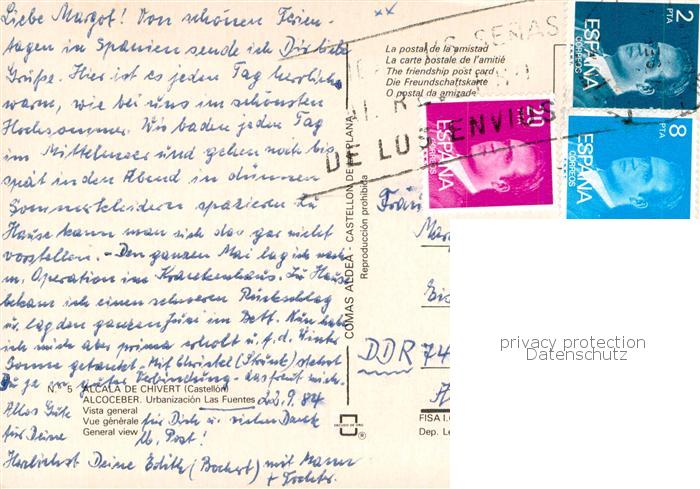 Liebe Margot! Von schönen Ferien-
tagen in Spanien sende ich Dir liebe
Grüße. Hier ist es jeden Tag herrlich
warm, wie bei uns im schönsten
Hochsommer. Wir baden jeden Tag
im Mittelmeer und gehen noch bis
spät in den Abend in dünnen
Sommerkleidern spazieren. Zu
Hause kann man sich das gar nicht
vorstellen. - Den ganzen Mai lag ich nach
m. Operation im Krankenhaus. Zu Hause
bekam ich einen schweren Rückschlag
u. lag den ganzen Juni im Bett. Nun habe
ich mich aber prima erholt u. f. d. Winter
Sonne getankt. - Mit Christel stehst
Du ja in guter Verbindung - das freut mich.
Alles Gute für Dich u. vielen Dank
für Deine lb. Post!
Herzlichst Deine Edith (Bochert) mit Mann
+ Tochter
22.9.84
Nº 5 ALCALA DE CHIVERT (Castellón)
ALCOCEBER. Urbanización Las Fuentes
Vista general
Vue générale
General view
COMAS ALDEA - CASTELLON DE LA PLANA
Reproducción prohibida
La postal de la amistad
La carte postale de l'amitié
The friendship post card
Die Freundschaftskarte
O postal da amizade
SEÑAS
DE LOS ENVIOS
2 PTA
ESPAÑA
CORREOS
20
ESPAÑA
CORREOS
8 PTA
ESPAÑA
CORREOS
DDR 74
FISA I.G
Dep. Le
privacy protection
Datenschutz